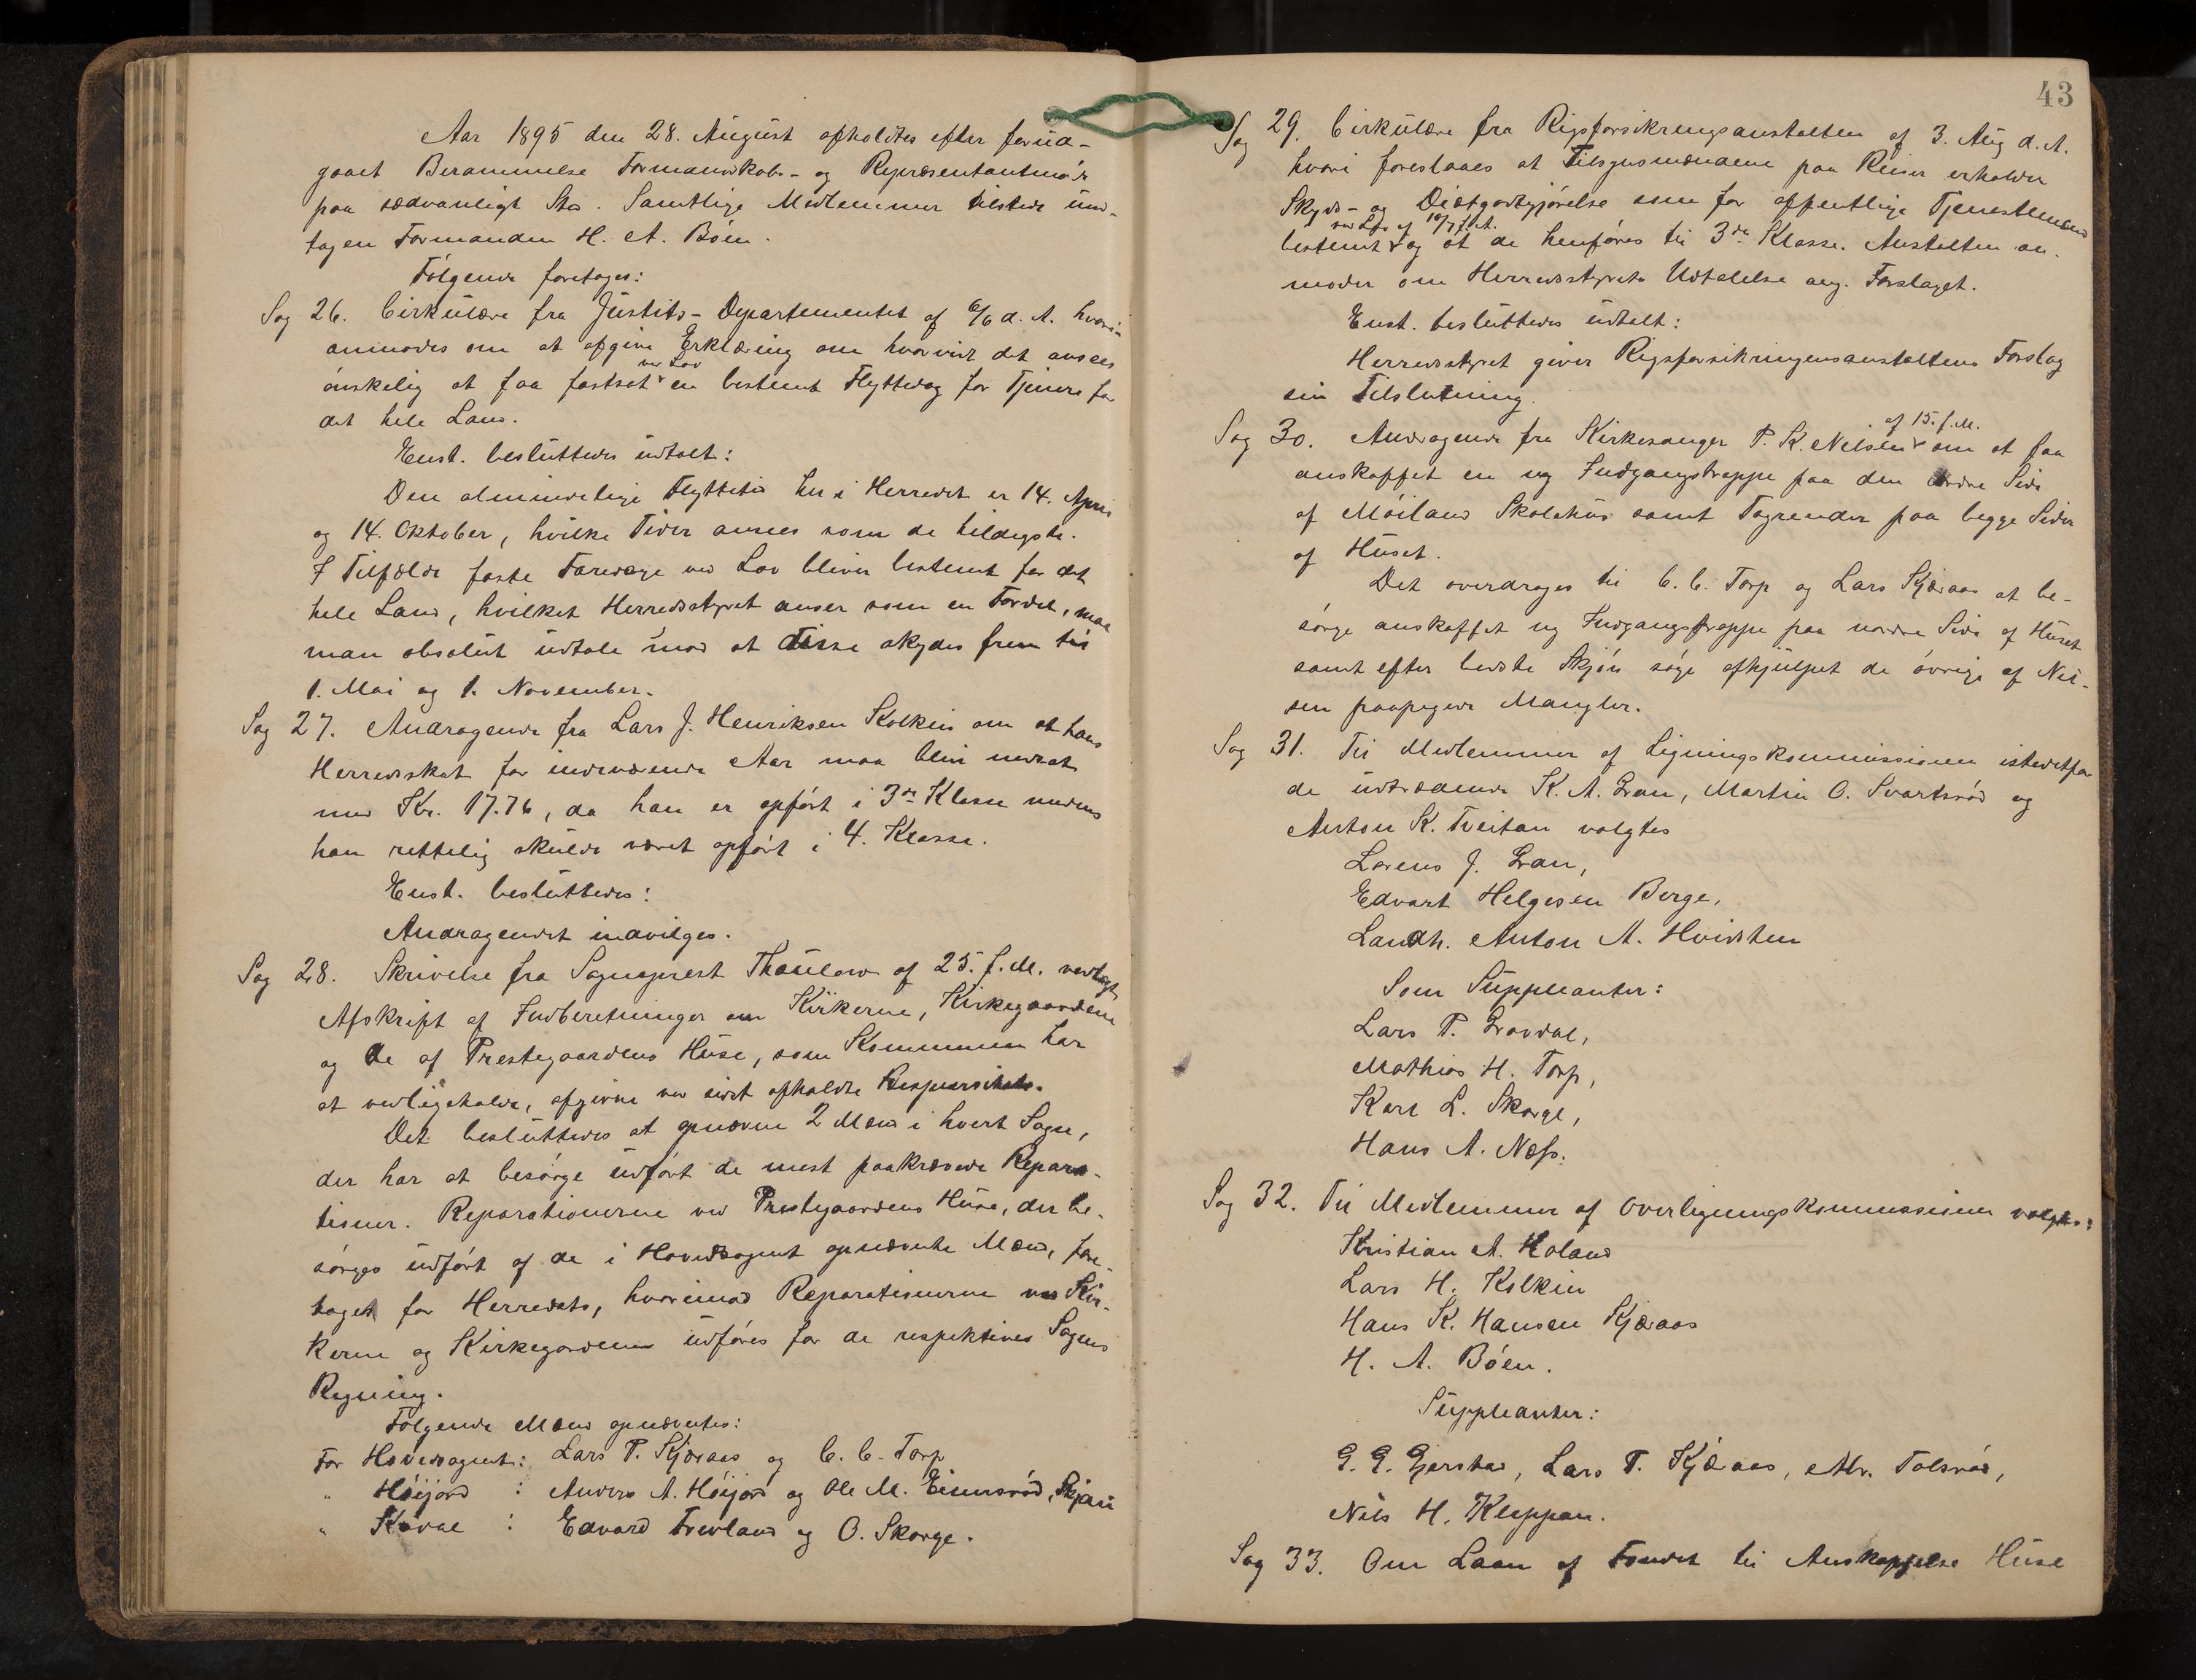 Aar 1895 den 28. August afholdtes efter forud-
gaaet Berammelse Formandskabs- og Repræsentantmøde
paa sædvanligt Sted. Samtlige Medlemmer tilstede und-
tagen Formanden H. A. Bøen.
Følgende foretoges:
Sag 26. Cirkulære fra Justits-Departementet af 6/6 d. A. hvori
anmodes om at afgive Erklæring om hvorvidt det ansees
ved Lov
ønskelig at faa fastsat en bestemt Flyttedag for Tjenere for
det hele Land.
Enst. besluttedes udtalt:
Den almindelige Flyttetid her i Herredet er 14. April
og 14. Oktober, hvilke Tider ansees som de heldigste.
I Tilfælde faste Faredage ved Lov bliver bestemt for det
hele Land, hvilket Herredsstyret anser som en Fordel, maa
man absolut udtale mod at disse skydes frem til
1. Mai og 1. November.
Sag 27. Andragende fra Lars J. Henriksen Kolkin om at hans
Herredsskat for indeværende Aar maa blive nedsat
med Kr. 17.76, da han er opført i 3de Klasse medens
han rettelig skulde været opført i 4. Klasse.
Enst. besluttedes:
Andragendet indvilges.
Sag 28. Skrivelse fra Sogneprest Thaulow af 25. f. M. vedlagt
Afskrift af Indberetninger om Kirkerne, Kirkegaardene
og de af Prestegaardens Huse, som Kommunen har
at vedligeholde, afgivne ved sidst afholdte
Det besluttedes at opnævne 2 Mænd i hvert Sogn,
der har at besørge udført de mest paakrævede Repara-
tioner. Reparationerne ved Prestegaardens Huse, der be-
sørges udført af de i Hovedsognet opnævnte Mænd, fore-
tages for Herredets, hvorimod Reparationerne ved Kir-
kerne og Kirkegaardene udføres for de respektives Sognes
Regning.
Følgende Mænd opnævntes:
For Hovedsognet: Lars P. Kjæraas og C. C. Torp
" Høijord : Anders A. Høijord og Ole M. Skjau
" Kodal : Edvard Trevland og O. Skorge.
43
Sag 29. Cirkulære fra Rigsforsikringsanstalten af 3. Aug d. A.
hvori foreslaaes at Tilsynsmændene paa Reiser erholder
Skyds- og Diætgodtgjørelse som for offentlige Tjenestemænd
ved Lov af 10/7 f. A.
bestemt og at de henføres til 3de Klasse. Anstalten an-
moder om Herredsstyrets Udtalelse ang. Forslaget.
Enst. besluttedes udtalt:
Herredsstyret giver Rigsforsikringensanstaltens Forslag
sin Tilslutning.
af 15. f. M.
Sag 30. Andragende fra Kirkesanger P. K. Nilsen om at faa
anskaffet en ny Indgangstrappe paa den Side
af Møiland Skolehus samt Tagrender paa begge Sider
af Huset.
Det overdrages til C. C. Torp og Lars Kjæraas at be-
sørge anskaffet ny Indgangstrappe paa nordre Side af Huset
samt efter bedste Skjøn søge afhjulpet de øvrige af Nil-
sen paapegede Mangler.
Sag 31. Til Medlemmer af Ligningskommissionen istedetfor
de udtrædende K. A. Gran, Martin O. Svartsrød og
Anton K. Tveitan valgtes
Lorens J. Gran,
Edvart Helgesen Berge,
Landh. Anton A. Hvidsten
Som Suppleanter:
Lars P. Gravdal,
Mathias H. Torp,
Karl L. Skorge,
Hans A. Næss.
Sag 32. Til Medlemmer af Overligningskommissionen valgtes:
Kristian A. Holand
Lars H. Kolkin
Hans K. Hansen Kjæraas
H. A. Bøen.
Suppleanter:
G. G. Gjerstad, Lars P. Kjæraas, Abr. Tolsrød,
Nils H. Kleppan.
Sag 33. Om Laan af Fondet til Anskaffelse Huse